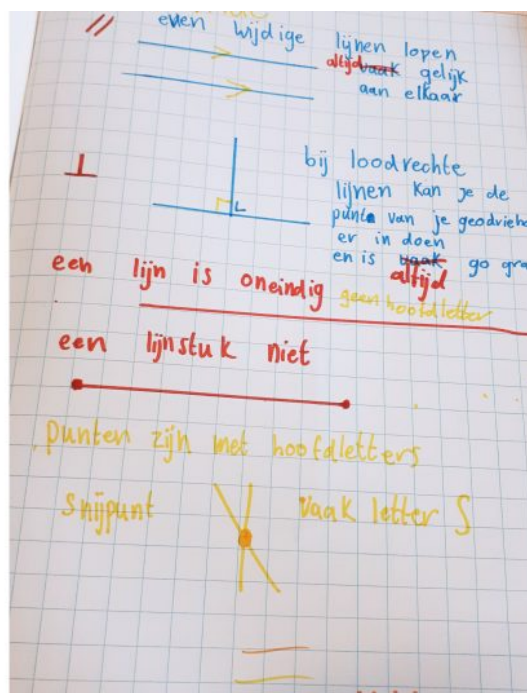 //
even wijdige lijnen lopen
altijd vaak gelijk
aan elkaar
⊥
bij loodrechte
lijnen kan je de
punt van je geodrieho
er in doen
en is vaak go gra
altijd
een lijn is oneindig geen hoofdletter
een lijnstuk niet
punten zijn met hoofdletters
snijpunt vaak letter S